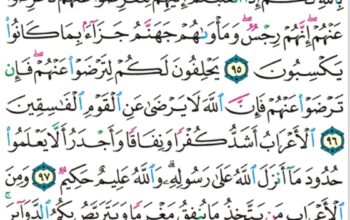 عَنۡهُمۡۖ إِنَّهُمۡ رِجۡسٞۖ وَمَأۡوَىٰهُمۡ جَهَنَّمُ جَزَآءَۢ بِمَا كَانُواْ
يَكۡسِبُونَ ٩٥ يَحۡلِفُونَ لَكُمۡ لِتَرۡضَوۡاْ عَنۡهُمۡۖ فَإِن
تَرۡضَوۡاْ عَنۡهُمۡ فَإِنَّ ٱللَّهَ لَا يَرۡضَىٰ عَنِ ٱلۡقَوۡمِ ٱلۡفَٰسِقِينَ
٩٦ ٱلۡأَعۡرَابُ أَشَدُّ كُفۡرٗا وَنِفَاقٗا وَأَجۡدَرُ أَلَّا يَعۡلَمُواْ
حُدُودَ مَآ أَنزَلَ ٱللَّهُ عَلَىٰ رَسُولِهِۦۗ وَٱللَّهُ عَلِيمٌ حَكِيمٞ ٩٧ وَمِنَ
ٱلۡأَعۡرَابِ مَن يَتَّخِذُ مَا يُنفِقُ مَغۡرَمٗا وَيَتَرَبَّصُ بِكُمُ ٱلدَّوَآئِرَۚ